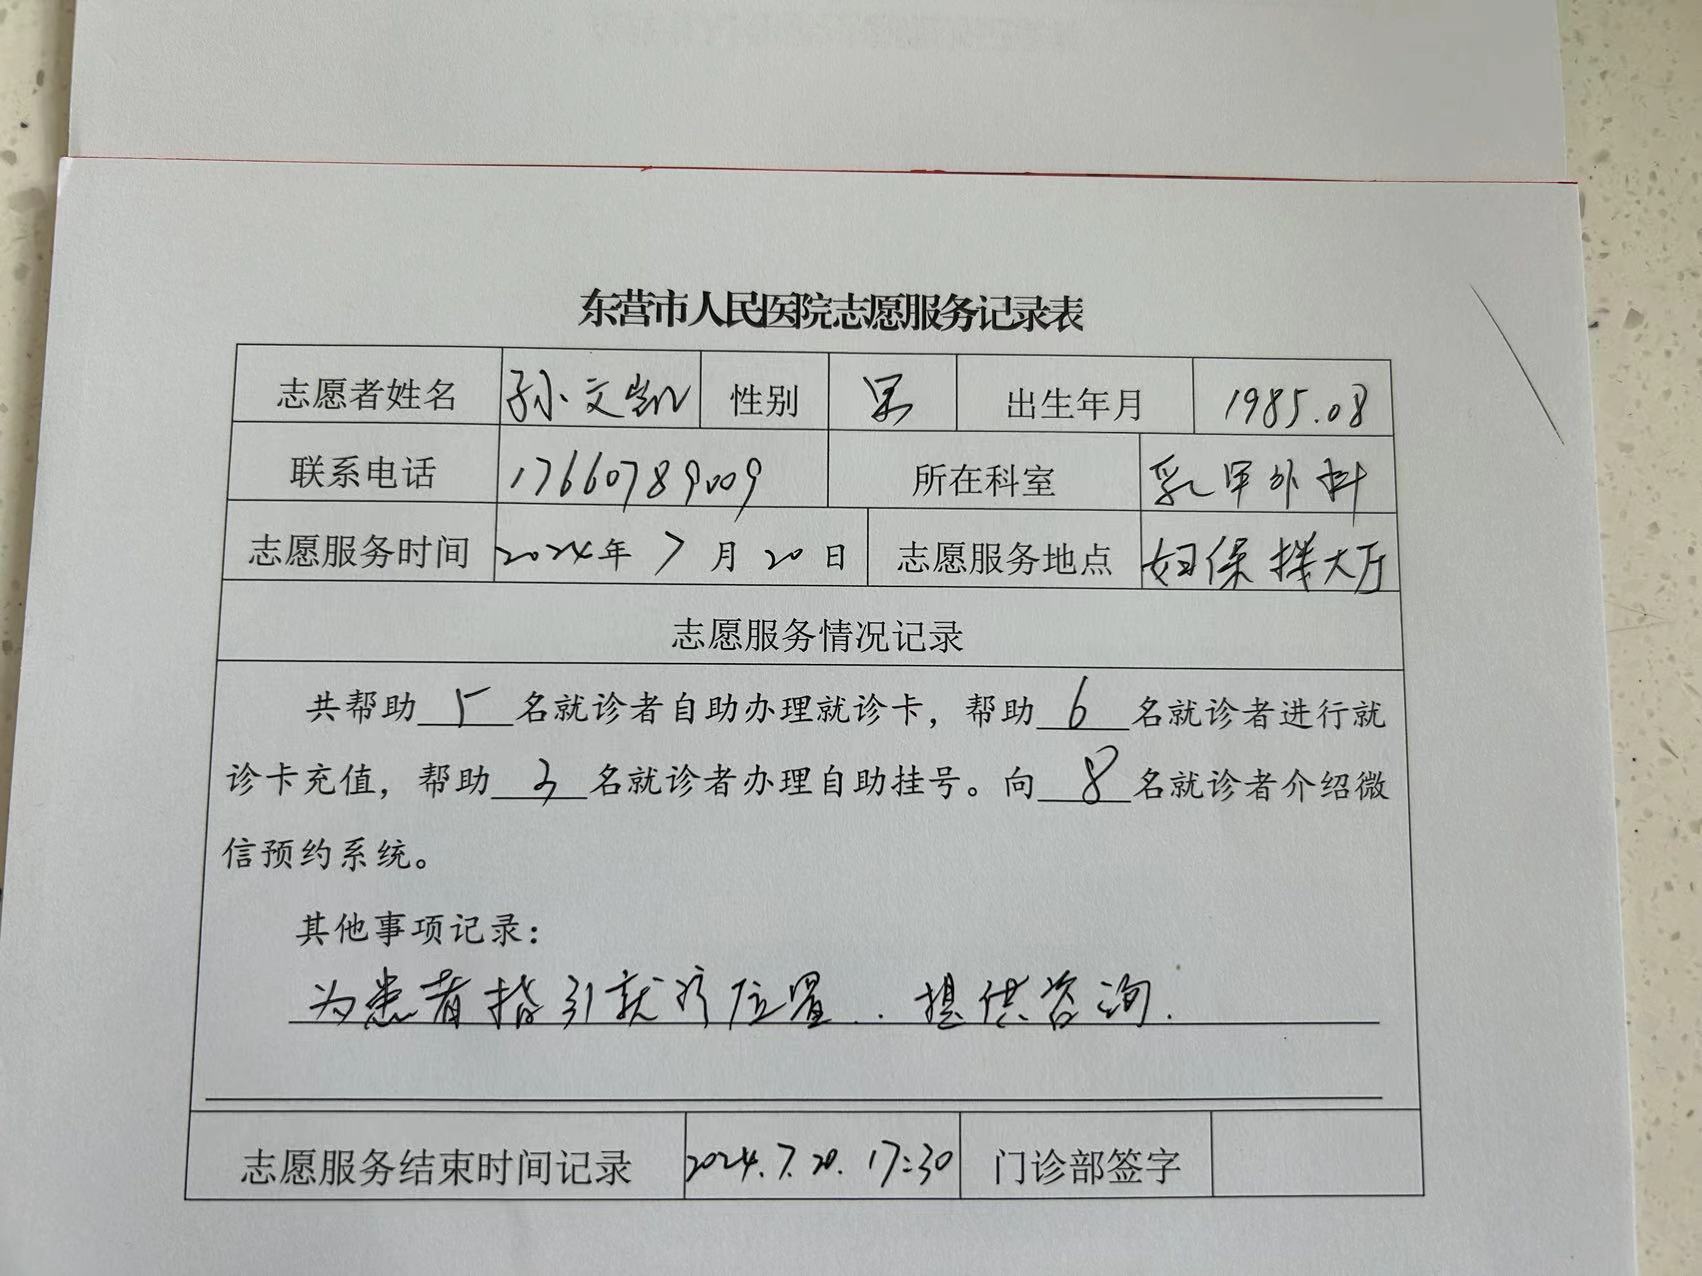 东营市人民医院志愿服务记录表
志愿者姓名 孙文凯 性别 男 出生年月 1985.08
联系电话 17660789009 所在科室 乳甲外科
志愿服务时间 2024年 7 月 20 日 志愿服务地点 妇保楼大厅
志愿服务情况记录
共帮助 5 名就诊者自助办理就诊卡，帮助 6 名就诊者进行就
诊卡充值，帮助 3 名就诊者办理自助挂号。向 8 名就诊者介绍微
信预约系统。
其他事项记录：
为患者指引就疗位置．．提供咨询．
志愿服务结束时间记录 2024.7.20. 17:30 门诊部签字